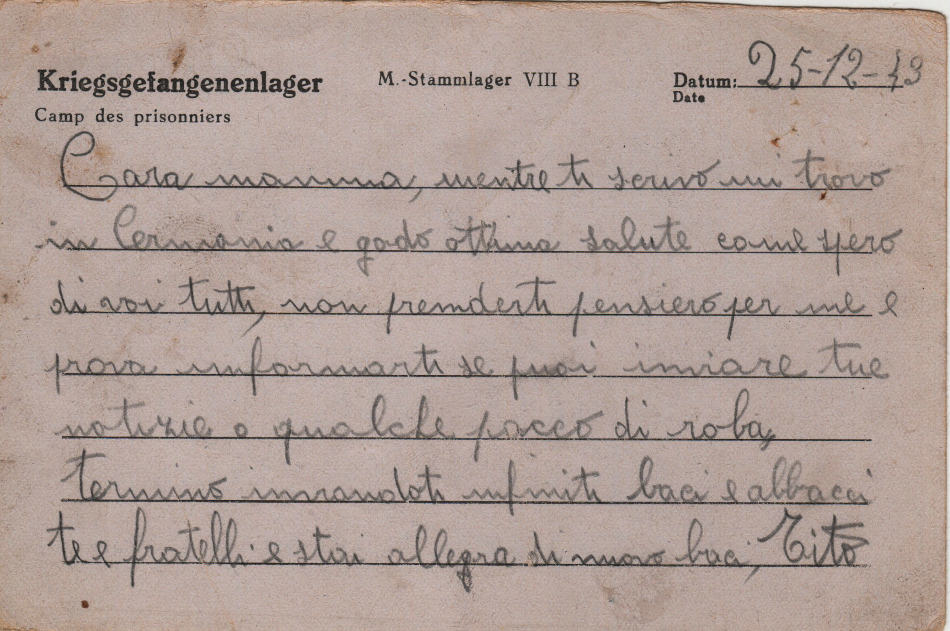 Kriegsgefangenenlager
M.-Stammlager VIII B
Datum: 25-12-43
Date
Camp des prisonniers
Cara mamma, mentre ti scrivo mi trovo
in Cermania e godo ottima salute come spero
di voi tutti, non premderti pensiero per me e
prova informarti se puoi inviare tue
notizie o qualche pacco di roba,
termino inviandoti infiniti baci e abbacci
te e fratelli e stai allegra di nuovo baci, Tito